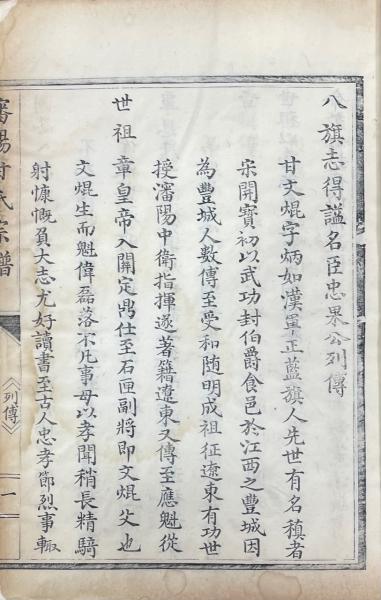 八旗志得諡名臣忠果公列傳
甘文焜字炳如漢軍正藍旗人先世有名稹者
宋開寶初以武功封伯爵食邑於江西之豐城因
為豐城人數傳至受和随明成祖征遼東有功世
授瀋陽中衛指揮遂著籍遼東又傳至應魁從
世祖章皇帝入關定鼎仕至石匣副將即文焜父也
文焜生而魁偉磊落不凡事母以孝聞稍長精騎
射慷慨負大志尤好讀書至古人忠孝節烈事輙
瀋陽甘氏宗譜
《列傳》
一